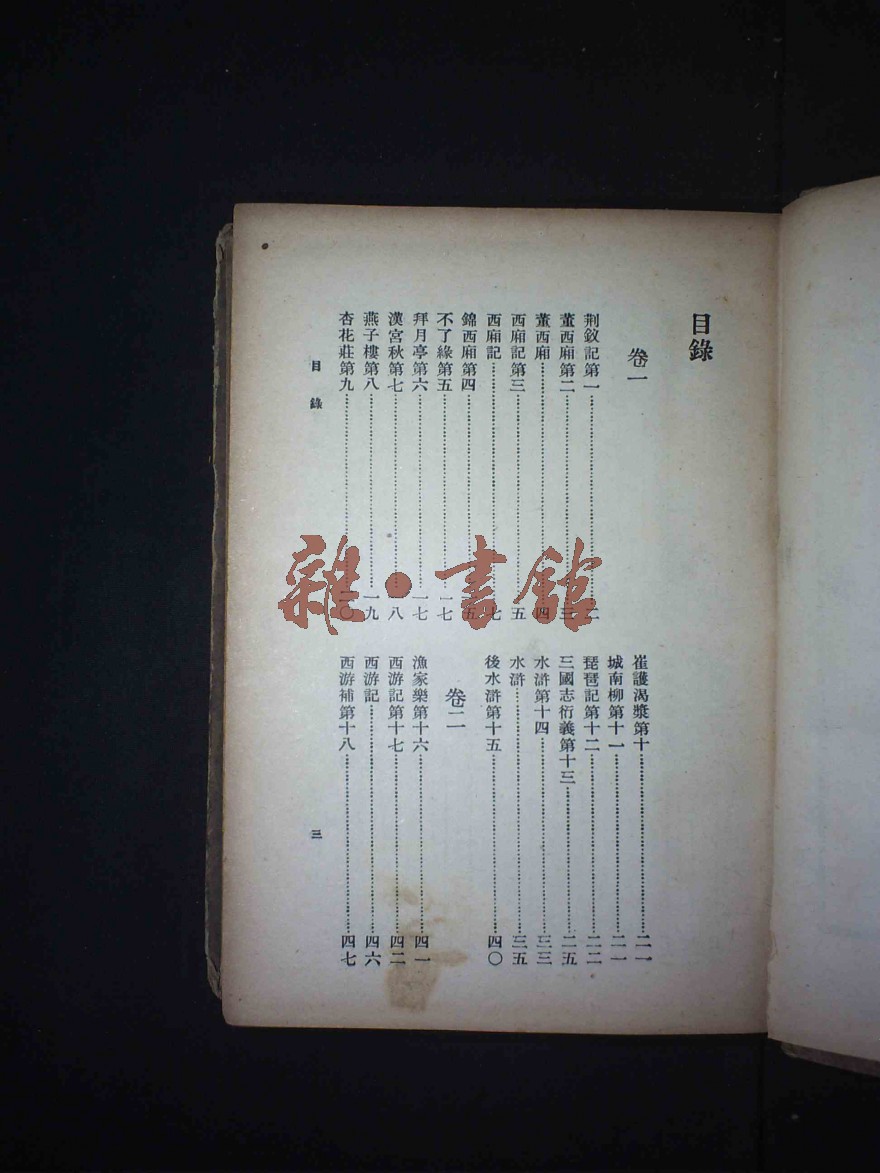 目錄
卷一
荆釵記第一……二
董西廂第二……三
董西廂……四
西廂記第三……五
西廂記……七
錦西廂第四……五
不了緣第五……一七
拜月亭第六……一七
漢宮秋第七……一八
燕子樓第八……一九
杏花莊第九……二〇
崔護渴漿第十……二一
城南柳第十一……二一
琵琶記第十二……二二
三國志衍義第十三……二五
水滸第十四……三三
水滸……三五
後水滸第十五……四〇
卷二
漁家樂第十六……四一
西游記第十七……四二
西游記……四六
西游補第十八……四七
目錄
三
雜·書館